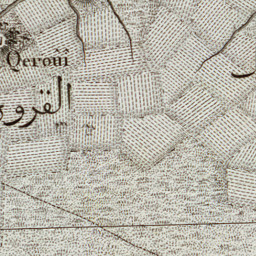 Qerouï
القروي